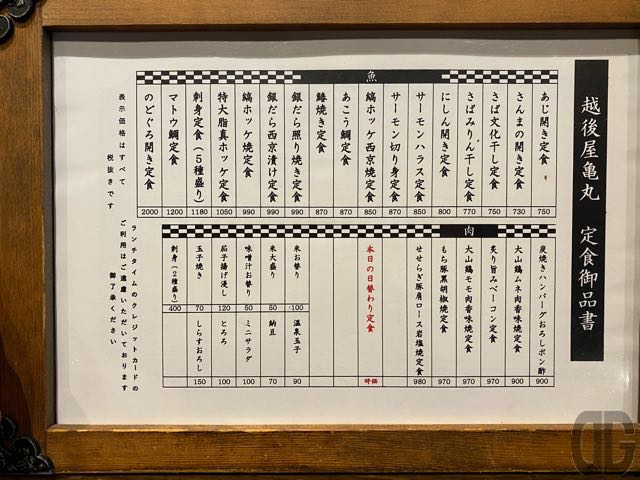 越後屋亀丸 定食御品書
魚
あじ開き定食 750
さんまの開き定食 730
さば文化干し定食 750
さばみりん干し定食 770
にしん開き定食 800
サーモンハラス定食 850
サーモン切り身定食 870
縞ホッケ西京焼定食 850
あこう鯛定食 870
鰆焼き定食 870
銀だら照り焼き定食 990
銀だら西京漬け定食 990
縞ホッケ焼定食 990
特大脂真ホッケ定食 1050
刺身定食(5種盛り) 1180
マトウ鯛定食 1200
のどぐろ開き定食 2000
肉
炭焼きハンバーグおろしポン酢 900
大山鶏ムネ肉香味焼定食 900
炙り旨みベーコン定食 970
大山鶏モモ肉香味焼定食 970
もち豚黒胡椒焼定食 970
せせらぎ豚肩ロース岩塩焼定食 980
本日の日替わり定食 時価
米お替り 100
米大盛り 50
味噌汁お替り 50
茄子揚げ浸し 120
玉子焼き 70
刺身(2種盛り) 400
温泉玉子 90
納豆 70
ミニサラダ 100
とろろ 100
しらすおろし 150
表示価格はすべて
税抜きです
ランチタイムのクレジットカードの
ご利用はご遠慮いただいております
御了承ください